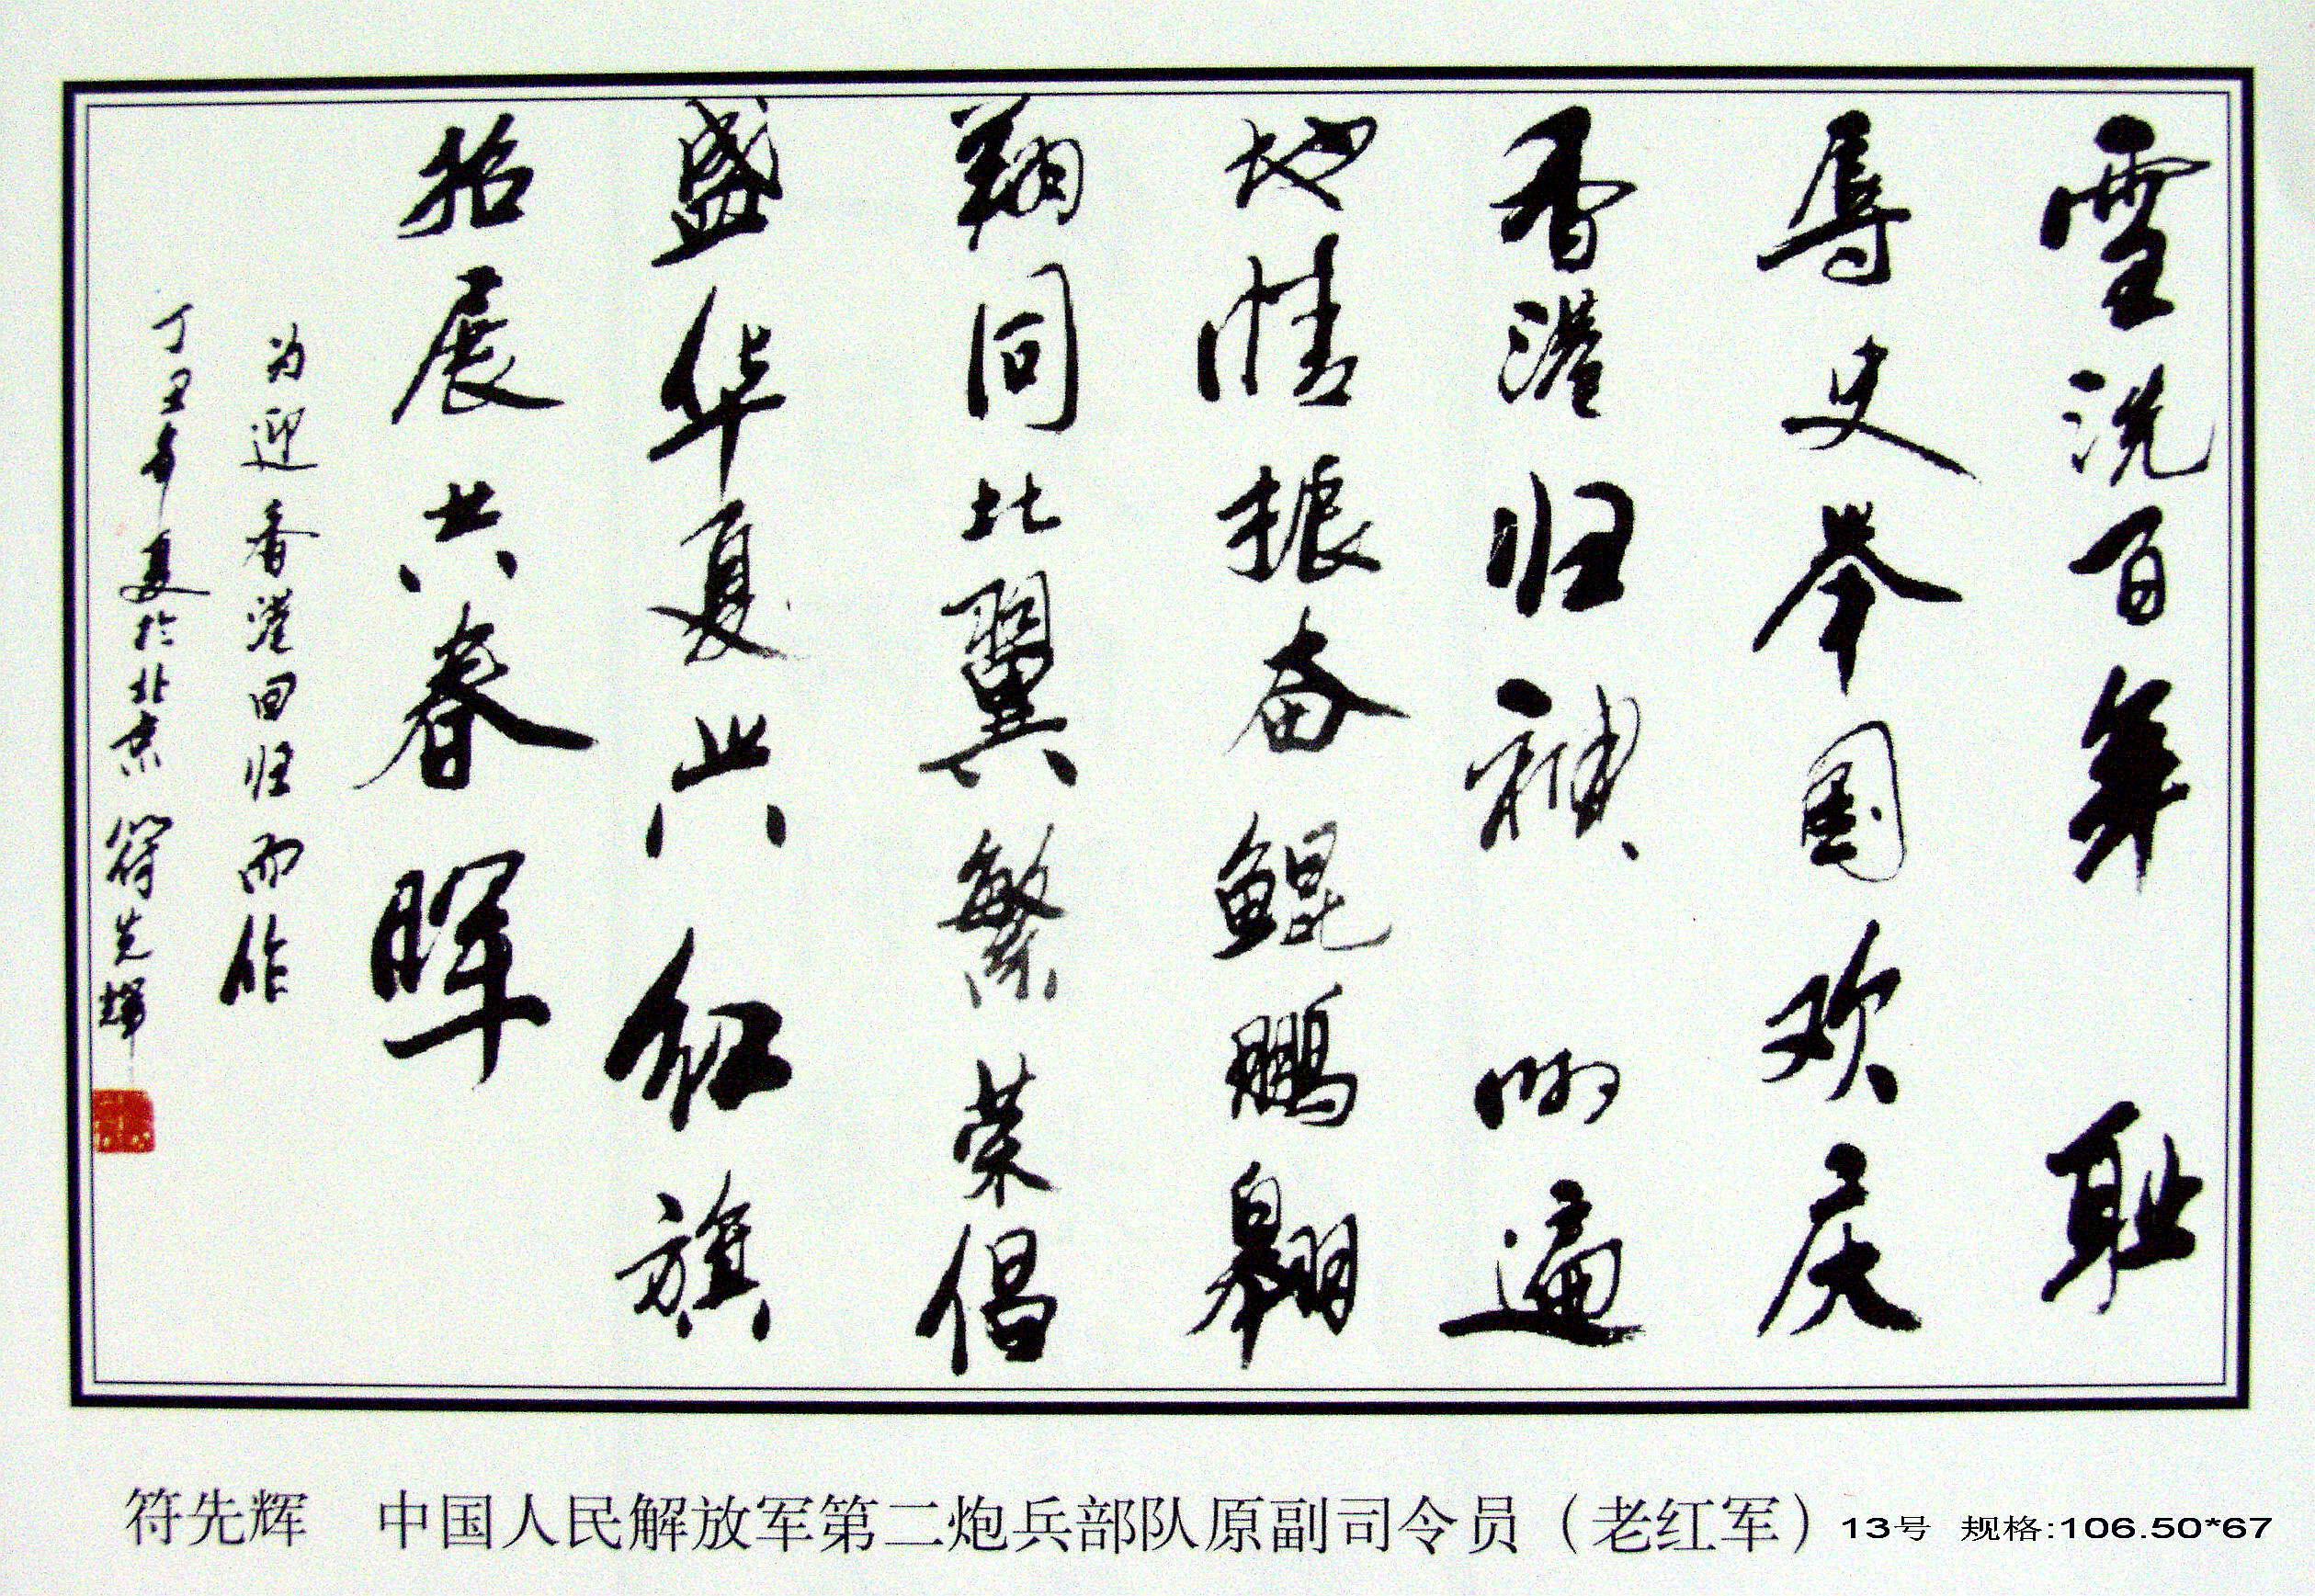 雪洗百年耻
辱史举国欢庆
香港归神州遍
地情振奋鲲鹏翱
翔同比翼繁荣倡
盛华夏兴红旗
招展共春晖
为迎香港回归而作
丁丑年夏於北京 符先辉
符先辉 中国人民解放军第二炮兵部队原副司令员（老红军）13号 规格:106.50*67